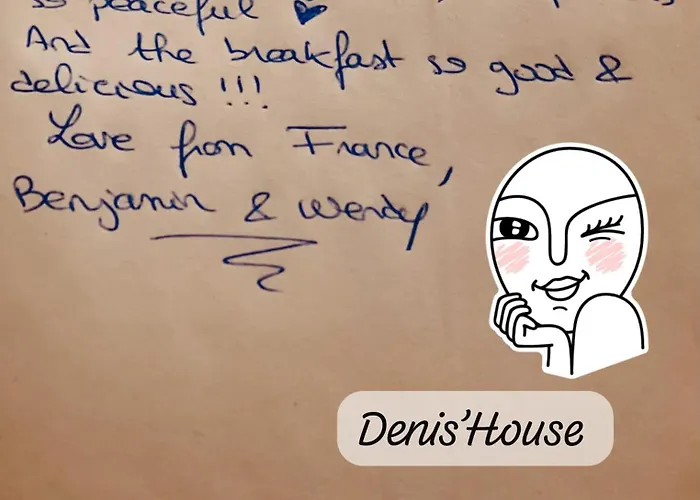 so peaceful
And the breakfast so good &
delicious !!!
Love from France,
Benjamin & Wendy
Denis'House